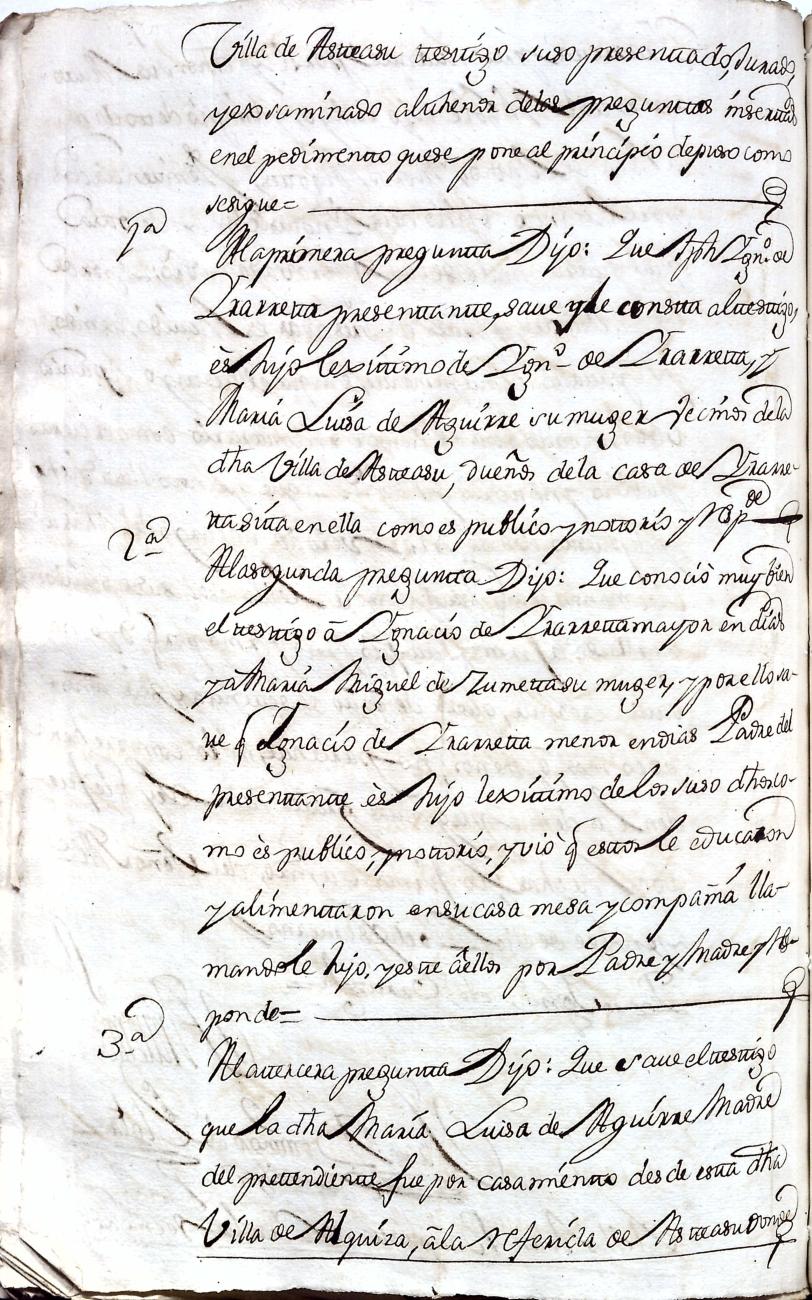 Villa de Asteasu testigo suso presentado, Jurado,
y exsaminado al thenor delas preguntas insertas
en el pedimento que se pone al principio depuso como
se sigue=
1a
A la primera pregunta Dijo: Que Jph Ign.o de
Irarreta presentante, save y le consta al testigo,
ès hijo lexitimo de Ign.o de Irarreta, y
Maria Luisa de Aguirre su muger vecinos de la
dha Villa de Asteasu, dueños de la casa de Irarre-
ta sita en ella como es publico y notorio y Resp.de
2a
A la segunda pregunta Dijo: Que conociò muy bien
el testigo à Ignacio de Irarreta mayor en dias
y à Maria Miguel de Zumeta su muger, y por ello sa-
ve q Ignacio de Irarreta menor en dias Padre del
presentante ès hijo lexitimo de los suso dhos co-
mo ès publico, y notorio, y viò q estos le educaron
y alimentaron en su casa mesa y compañia lla-
mandole hijo, y este à ellos por Padre y Madre y Res-
ponde=
3a
A la tercera pregunta Dijo: Que save el testigo
que la dha Maria Luisa de Aguirre Madre
del pretendiente fue por casamiento desde esta dha
Villa de Alquiza, à la referida de Asteasu donde